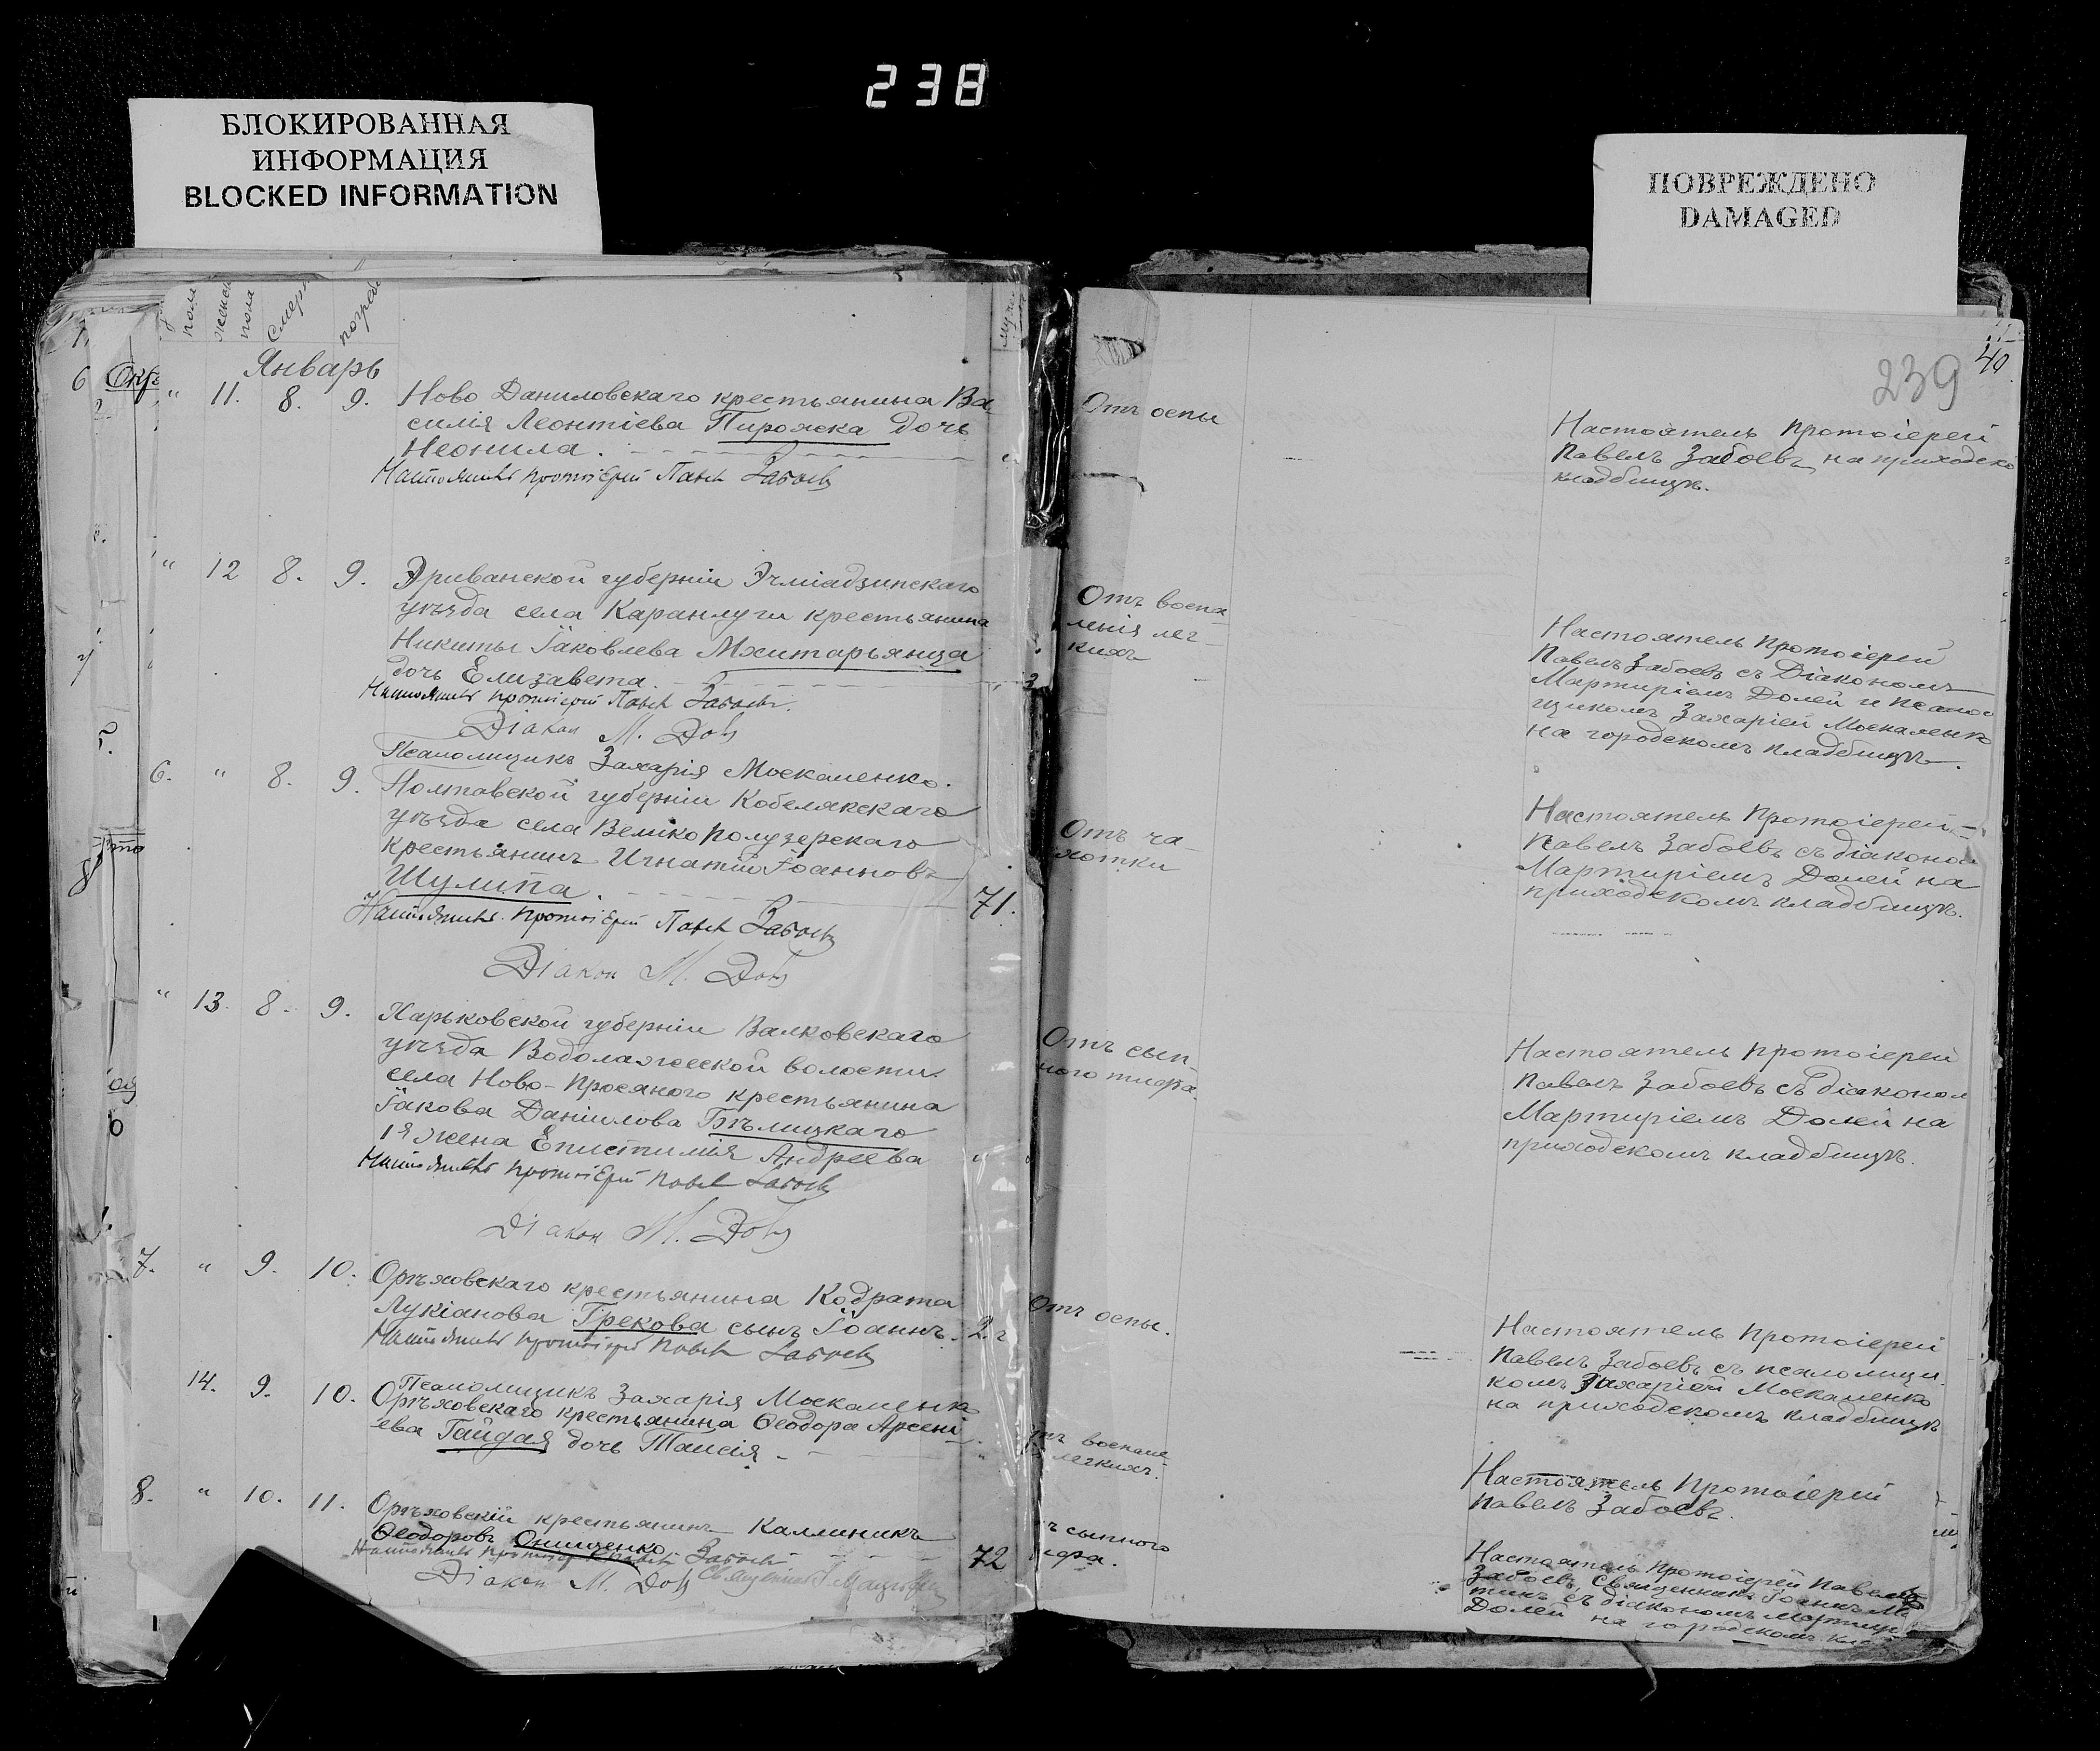 238
БЛОКИРОВАННАЯ
ИНФОРМАЦИЯ
BLOCKED INFORMATION
ПОВРЕЖДЕНО
DAMAGED
239
40
Январь
" 11. 8. 9. Ново Даниловскаго крестьянина Ва
силія Леонтіева Пирожка дочь
Неонила.
Настоятель Протоіерей Павел Забоевъ
Отъ оспы
Настоятель Протоіерей
Павелъ Забоевъ, на приходско
кладбищѣ.
" 12 8. 9. Эриванской губерніи Эчміадзинскаго
уѣзда села Каранлуги крестьянина
Никиты Іаковлева Мхитарьянца
дочь Елизавета.
Настоятель Протоіерей Павел Забоевъ.
Діакон М. Доля
Псаломщикъ Захарія Москаленко.
Отъ воспа
ленія лег
кихъ
Настоятель Протоіерей
Павелъ Забоевъ съ Діакономъ
Мартиріемъ Долей и псалом
щикомъ Захаріей Москаленко
на городскомъ кладбищѣ.
6. " 8. 9. Полтавской губерніи Кобелякскаго
уѣзда села Велико Полузерскаго
крестьянинъ Игнатій Іоанновъ
Шулипа. 71.
Настоятель Протоіерей Павел Забоевъ
Діакон М. Доля
Отъ ча-
хотки
Настоятель Протоіерей
Павелъ Забоевъ съ діакономъ
Мартиріемъ Долей на
приходскомъ кладбищѣ.
" 13. 8. 9. Харьковской губерніи Валковскаго
уѣзда Водолажской волости
села Ново-Просяного крестьянина
Іакова Даніилова Бѣлицкаго
1я жена Епистимія Андреева
Настоятель Протоіерей Павел Забоевъ
Діакон М. Доля
Отъ сып
ного тифа.
Настоятель Протоіерей
Павелъ Забоевъ съ діаконом
Мартиріемъ Долей на
приходскомъ кладбищѣ.
7. " 9. 10. Орѣховскаго крестьянина Кодрата
Лукіанова Грекова сынъ Іоаннъ. 2 г
Настоятель Протоіерей Павел Забоевъ
Псаломщикъ Захарія Москаленко
Отъ оспы.
Настоятель Протоіерей
Павелъ Забоевъ съ псаломщи
комъ Захаріей Москаленко
на приходскомъ кладбищѣ
14. 9. 10. Орѣховскаго крестьянина Ѳеодора Арсені
ева Гайдая дочь Таисія
тъ воспале
легкихъ.
Настоятель Протоіерей
Павелъ Забоевъ.
8. " 10. 11. Орѣховскій крестьянинъ Каллиникъ
Ѳеодоровъ Онищенко 72
Настоятель Протоіерей Павел Забоевъ
Діакон М. Доля Священник
ъ сыпного
ифа.
Настоятель Протоіерей Павелъ
Забоевъ, Священникъ Іоаннъ
съ діакономъ Мартирі
Долей на городскомъ кла